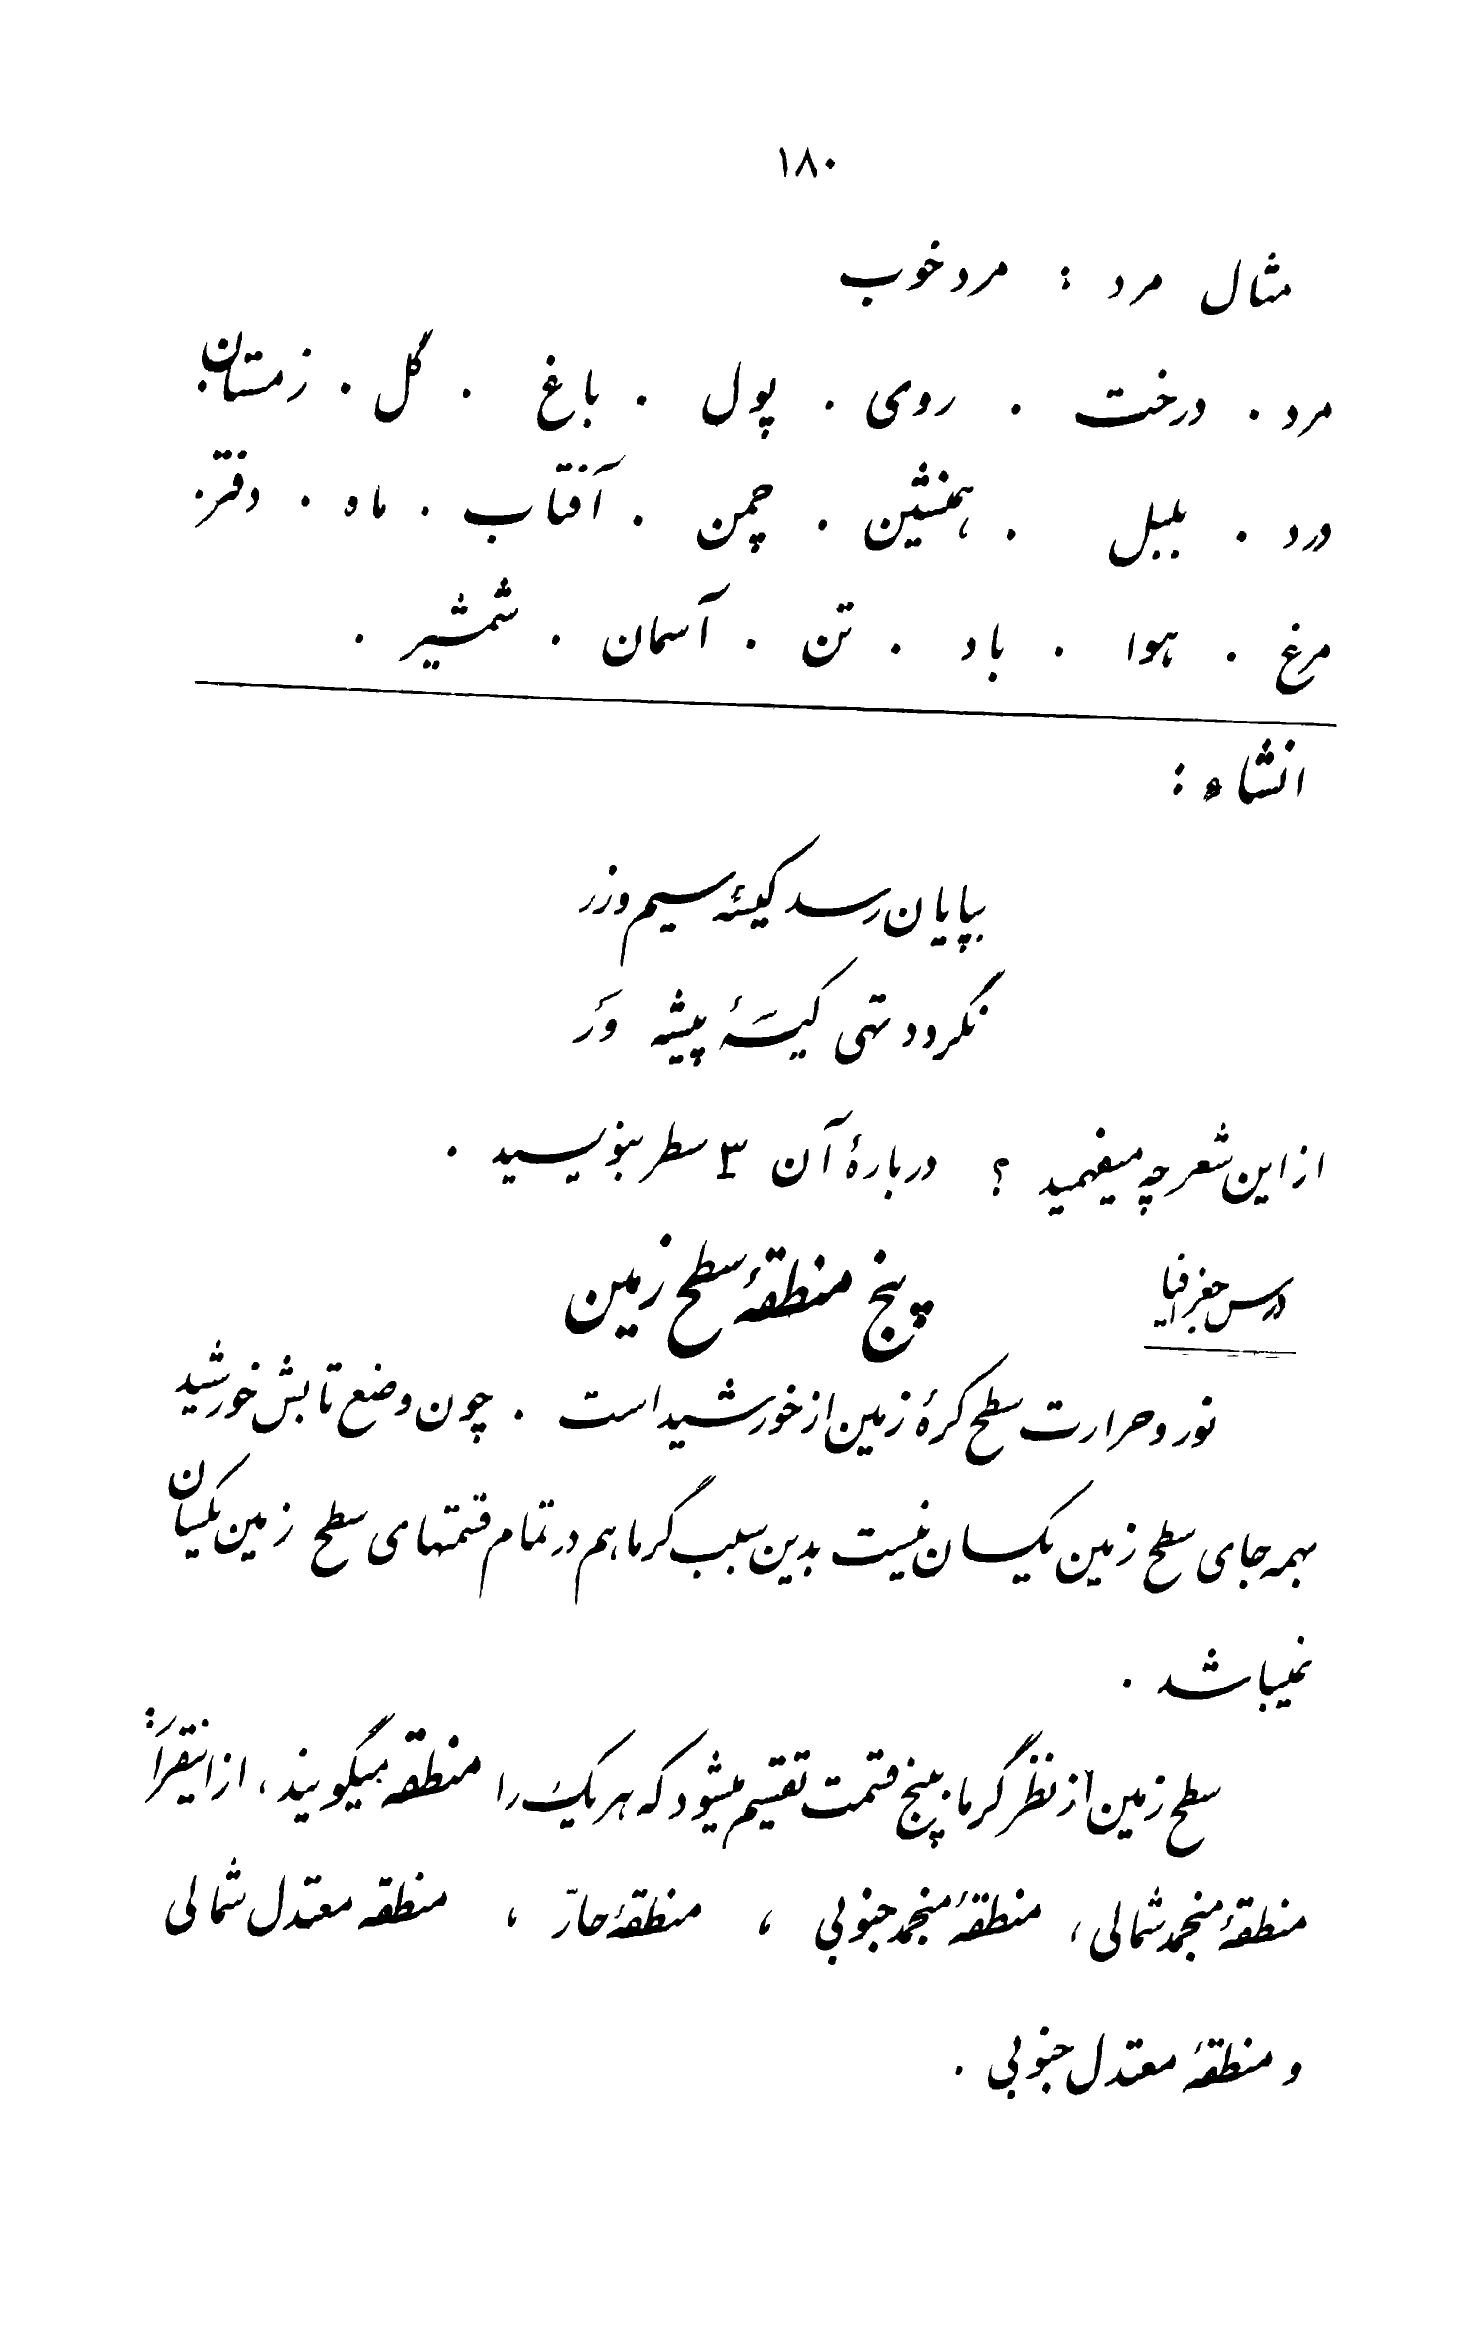 ۱۸۰
مثال مرد : مرد خوب
مرد . درخت . روی . پول . باغ . گل . زمستان .
درد . بلبل . همنشین . چمن . آفتاب . ماه . دفتر .
مرغ . هوا . باد . تن . آسمان . شمشیر .
انشاء :
بپایان رسد کیسۀ سیم و زر
نگردد تهی کیسۀ پیشه وَر
از این شعر چه میفهمید ؟ دربارۀ آن ۳ سطر بنویسید .
درس جغرافیا
پنج منطقۀ سطح زمین
نور و حرارت سطح کرۀ زمین از خورشید است . چون وضع تابش خورشید
بهمه جای سطح زمین یکسان نیست بدین سبب گرما هم در تمام قسمتهای سطح زمین یکسان
نمیباشد .
سطح زمین از نظر گرما به پنج قسمت تقسیم میشود که هر یک را منطقه میگویند ، از اینقرار :
منطقۀ منجمد شمالی ، منطقۀ منجمد جنوبی ، منطقۀ حارّ ، منطقه معتدل شمالی
و منطقۀ معتدل جنوبی .